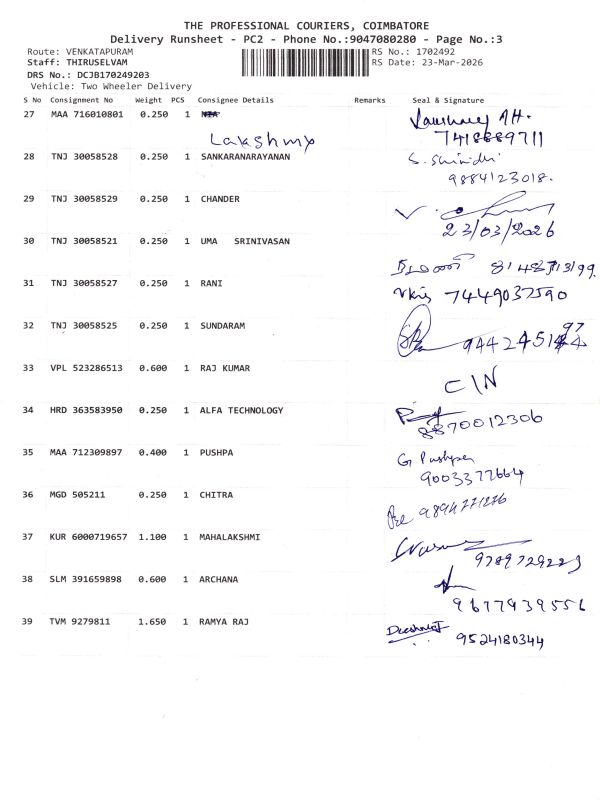 THE PROFESSIONAL COURIERS, COIMBATORE
Delivery Runsheet - PC2 - Phone No.:9047080280 - Page No.:3
Route: VENKATAPURAM RS No.: 1702492
Staff: THIRUSELVAM RS Date: 23-Mar-2026
DRS No.: DCJB170249203
Vehicle: Two Wheeler Delivery
S No Consignment No Weight PCS Consignee Details Remarks Seal & Signature
27 MAA 716010801 0.250 1
Lakshmy 7418689711
28 TNJ 30058528 0.250 1 SANKARANARAYANAN
9884123018.
29 TNJ 30058529 0.250 1 CHANDER
23/03/2026
30 TNJ 30058521 0.250 1 UMA SRINIVASAN
31 TNJ 30058527 0.250 1 RANI
7449037590
32 TNJ 30058525 0.250 1 SUNDARAM
33 VPL 523286513 0.600 1 RAJ KUMAR
C/N
34 HRD 363583950 0.250 1 ALFA TECHNOLOGY
8870012306
35 MAA 712309897 0.400 1 PUSHPA
G Pushpa
9003377664
36 MGD 505211 0.250 1 CHITRA
9894771276
37 KUR 6000719657 1.100 1 MAHALAKSHMI
9789729223
38 SLM 391659898 0.600 1 ARCHANA
9677939556
39 TVM 9279811 1.650 1 RAMYA RAJ
9524180344